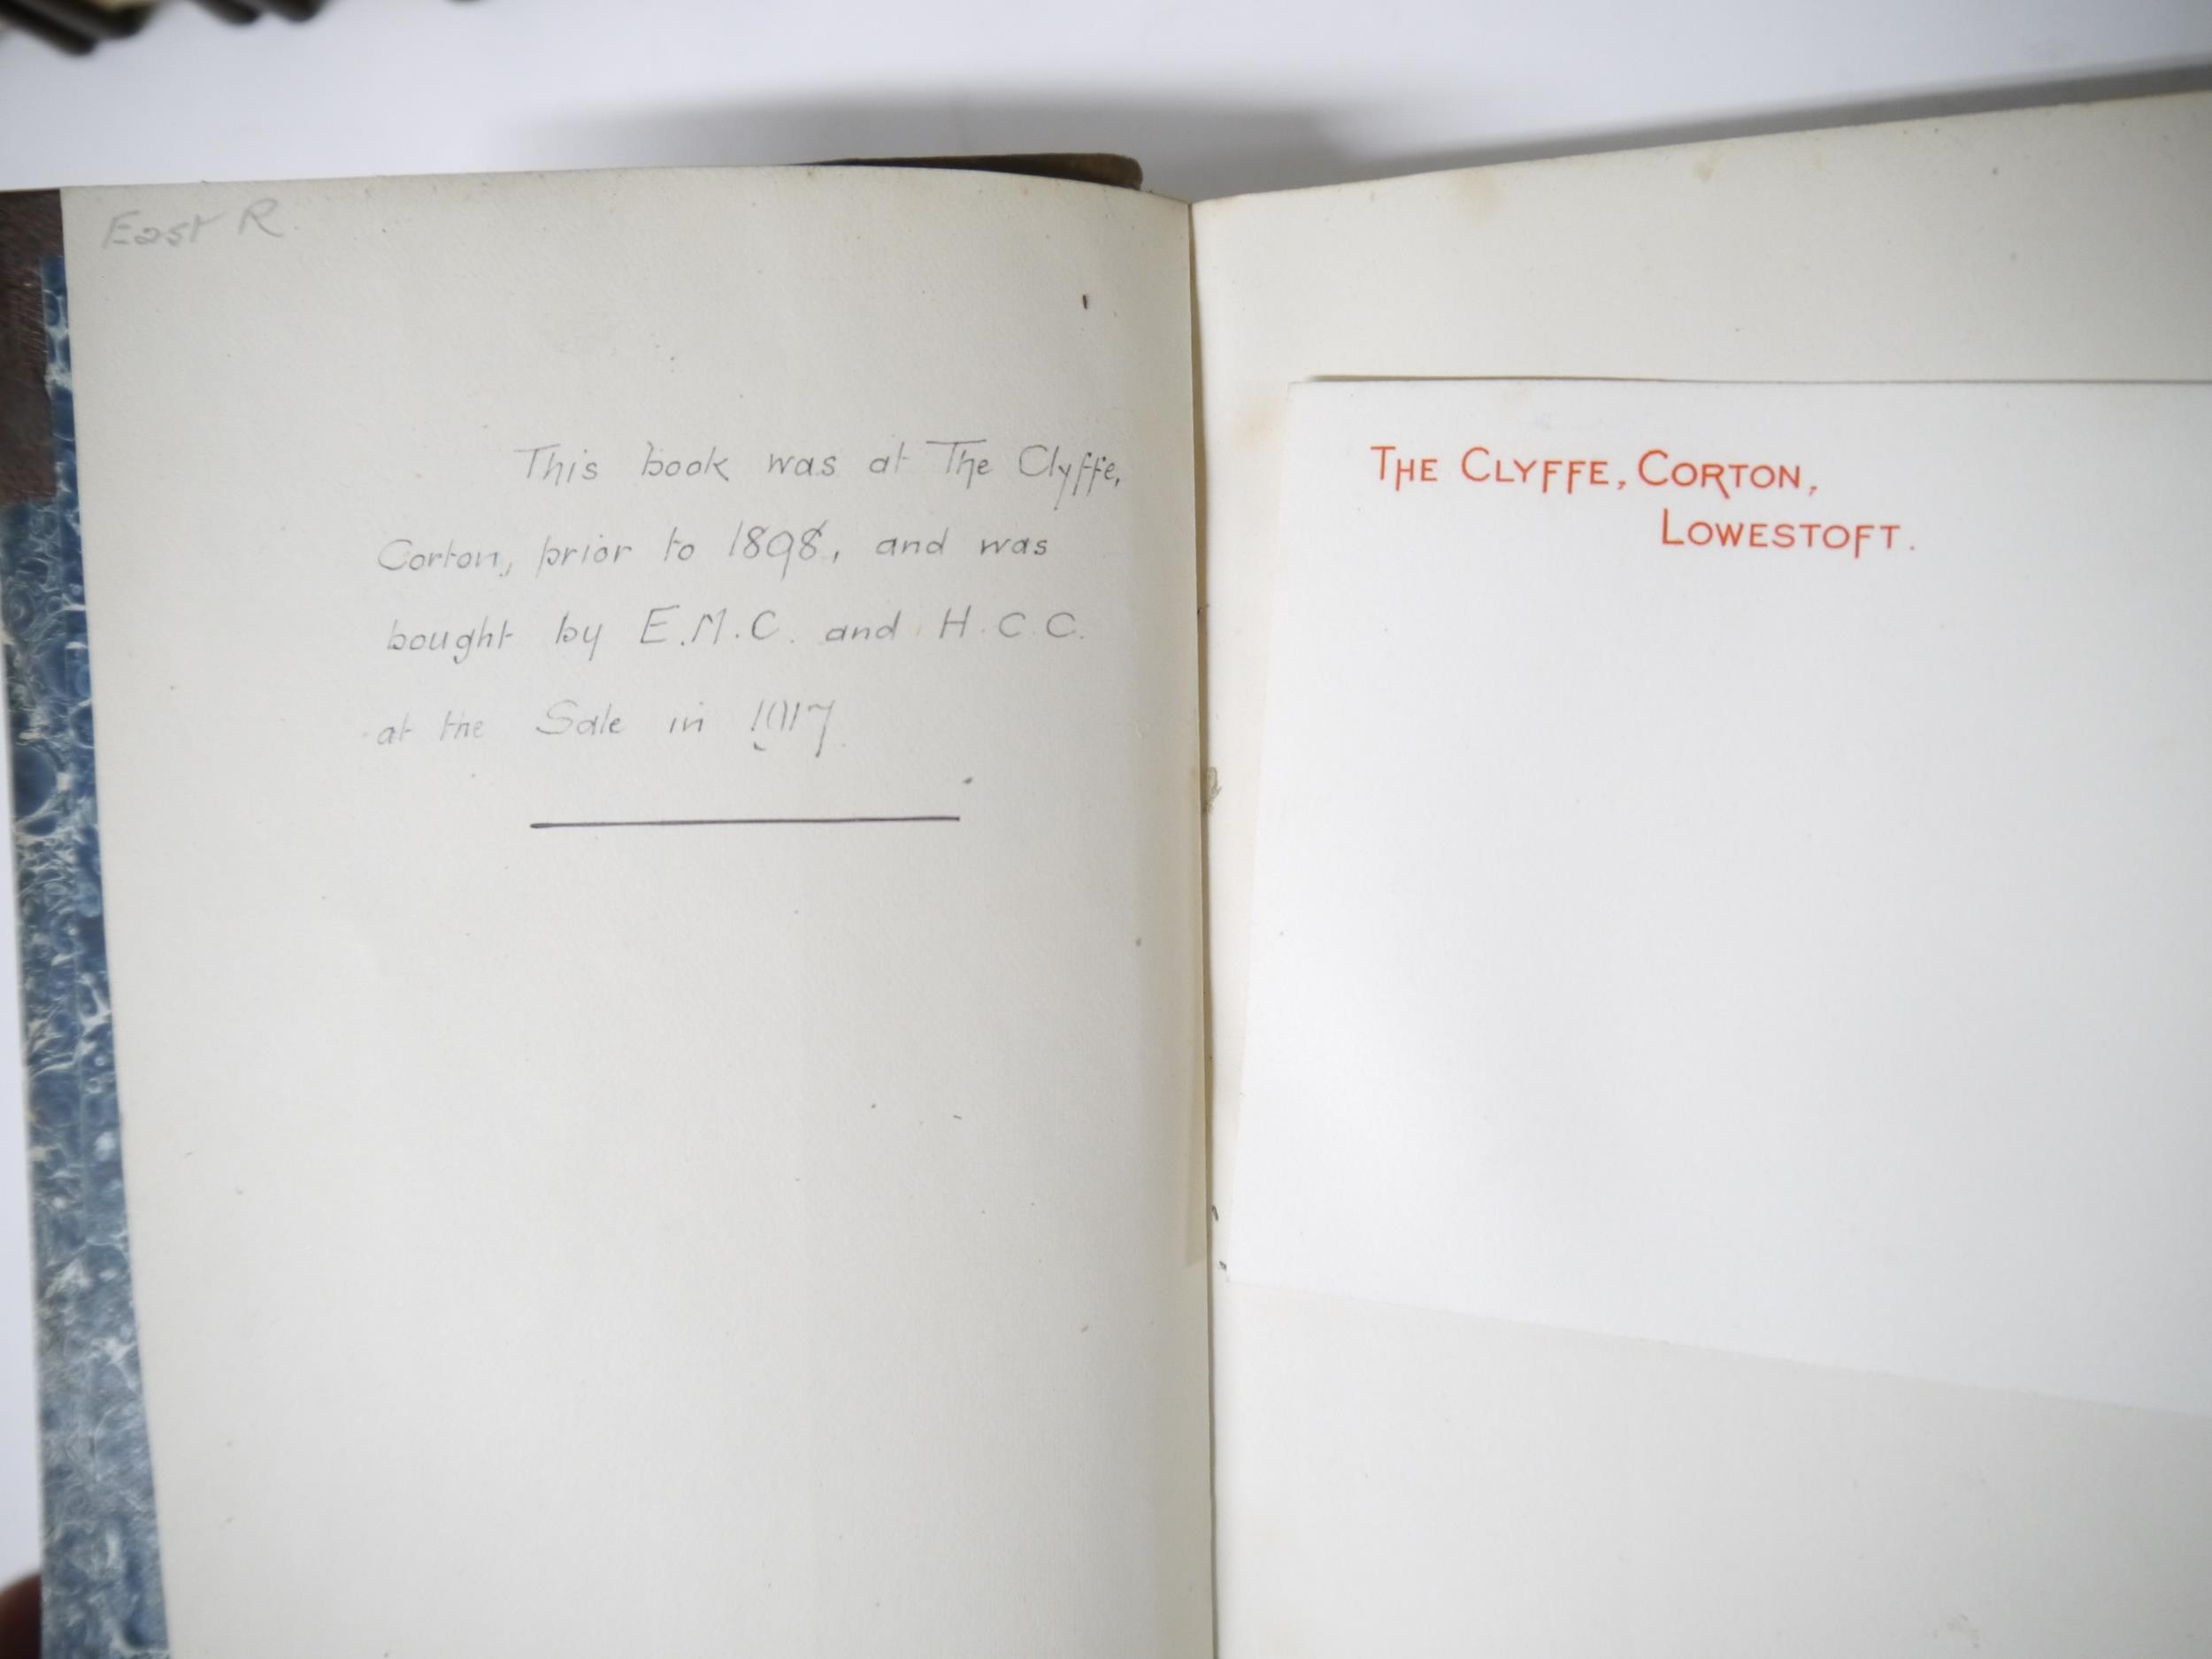 East R.
This book was at The Clyffe,
Corton, prior to 1898, and was
bought by E.M.C. and H.C.C.
at the Sale in 1917.
THE CLYFFE, CORTON,
LOWESTOFT.